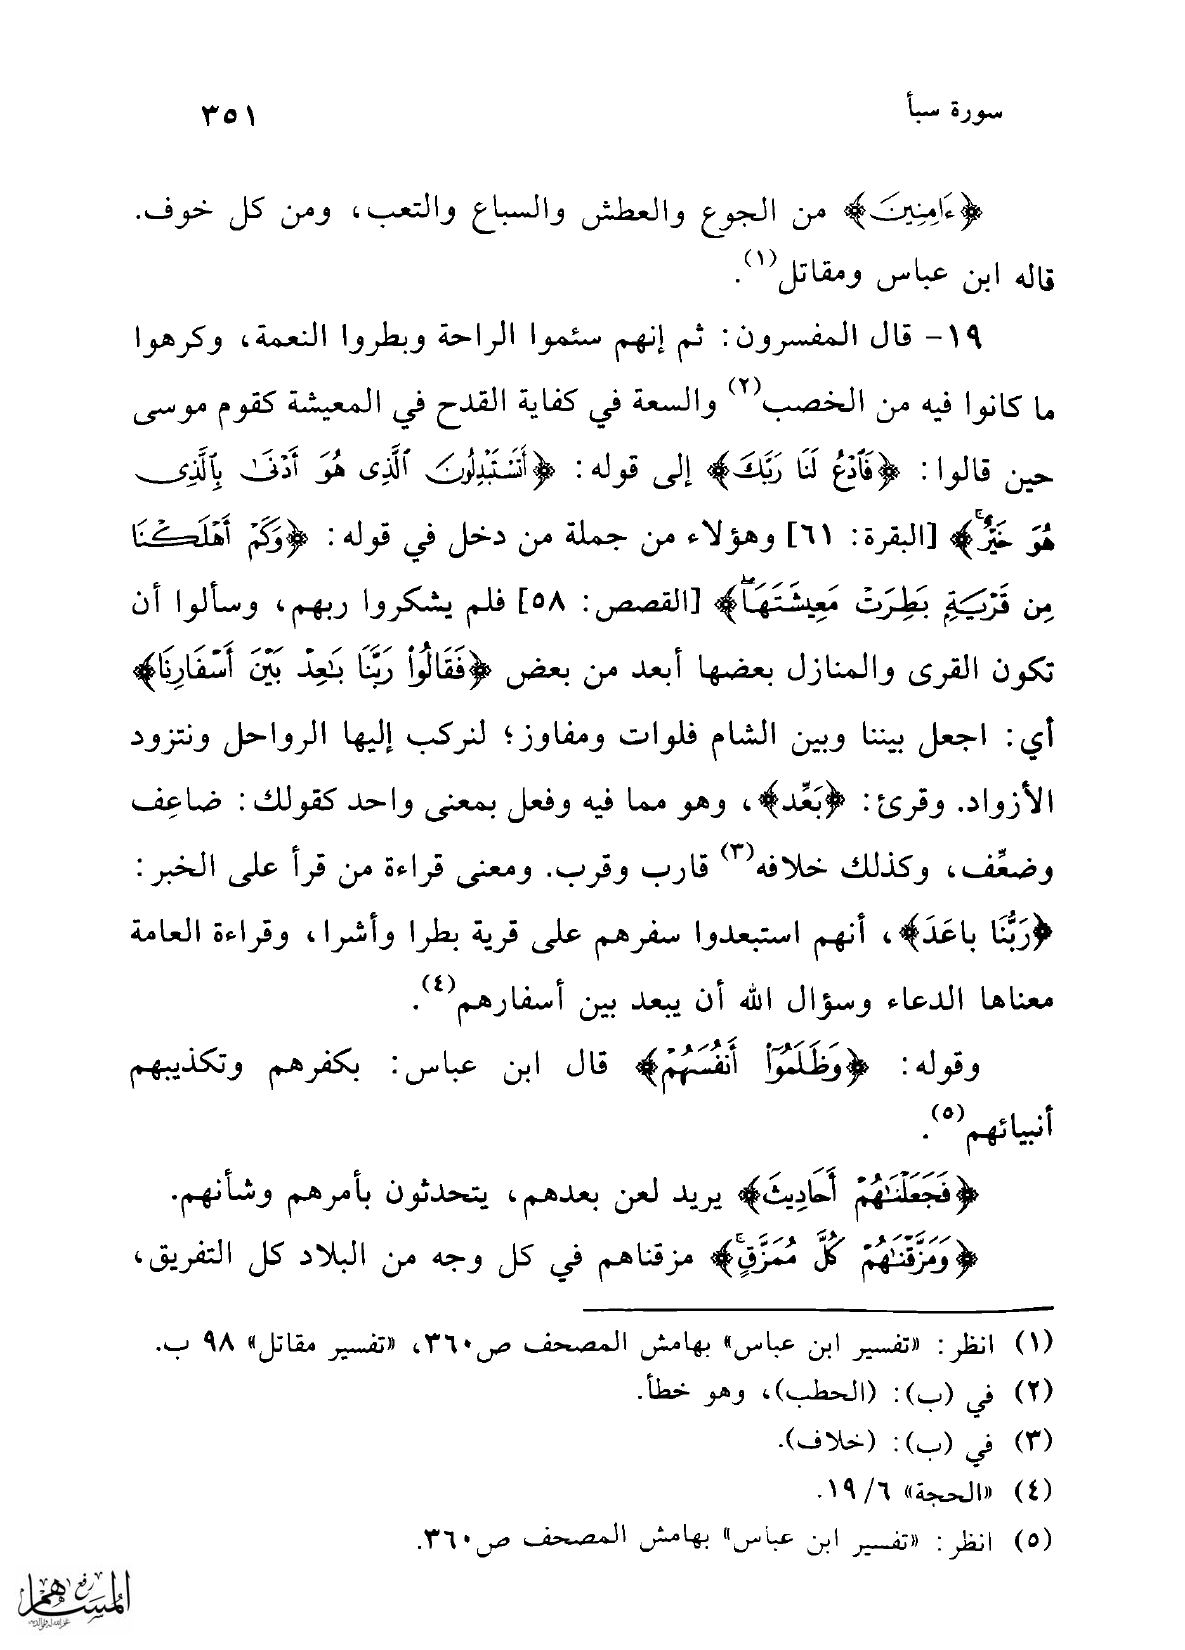 سورة سبأ ٣٥١
﴿ءَامِنِينَ﴾ من الجوع والعطش والسباع والتعب، ومن كل خوف.
قاله ابن عباس ومقاتل(١).
١٩- قال المفسرون: ثم إنهم سئموا الراحة وبطروا النعمة، وكرهوا
ما كانوا فيه من الخصب(٢) والسعة في كفاية القدح في المعيشة كقوم موسى
حين قالوا: ﴿فَٱدۡعُ لَنَا رَبَّكَ﴾ إلى قوله: ﴿أَتَسۡتَبۡدِلُونَ ٱلَّذِى هُوَ أَدۡنَىٰ بِٱلَّذِى
هُوَ خَيۡرٌۚ﴾ [البقرة: ٦١] وهؤلاء من جملة من دخل في قوله: ﴿وَكَمۡ أَهۡلَكۡنَا
مِن قَرۡيَةِۭ بَطِرَتۡ مَعِيشَتَهَاۖ﴾ [القصص: ٥٨] فلم يشكروا ربهم، وسألوا أن
تكون القرى والمنازل بعضها أبعد من بعض ﴿فَقَالُواْ رَبَّنَا بَٰعِدۡ بَيۡنَ أَسۡفَارِنَا﴾
أي: اجعل بيننا وبين الشام فلوات ومفاوز؛ لنركب إليها الرواحل ونتزود
الأزواد. وقرئ: ﴿بَعِّد﴾، وهو مما فيه وفعل بمعنى واحد كقولك: ضاعِف
وضعِّف، وكذلك خلافه(٣) قارب وقرب. ومعنى قراءة من قرأ على الخبر:
﴿رَبُّنَا باعَدَ﴾، أنهم استبعدوا سفرهم على قرية بطرا وأشرا، وقراءة العامة
معناها الدعاء وسؤال الله أن يبعد بين أسفارهم(٤).
وقوله: ﴿وَظَلَمُوٓاْ أَنفُسَهُمۡ﴾ قال ابن عباس: بكفرهم وتكذيبهم
أنبيائهم(٥).
﴿فَجَعَلۡنَٰهُمۡ أَحَادِيثَ﴾ يريد لعن بعدهم، يتحدثون بأمرهم وشأنهم.
﴿وَمَزَّقۡنَٰهُمۡ كُلَّ مُمَزَّقٍۚ﴾ مزقناهم في كل وجه من البلاد كل التفريق،
(١) انظر: «تفسير ابن عباس» بهامش المصحف ص٣٦٠، «تفسير مقاتل» ٩٨ ب.
(٢) في (ب): (الحطب)، وهو خطأ.
(٣) في (ب): (خلاف).
(٤) «الحجة» ٦/ ١٩.
(٥) انظر: «تفسير ابن عباس» بهامش المصحف ص٣٦٠.